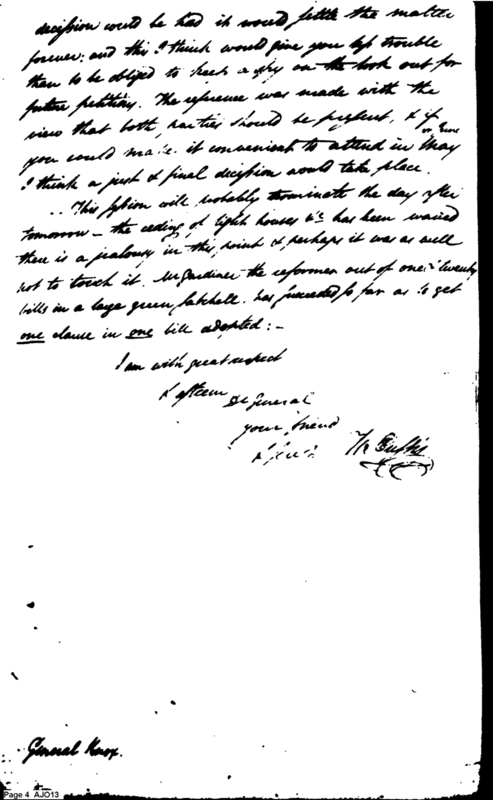 decission could be had it would settle the matter
forever; and this I think would give you less trouble
than to be obliged to keep a spy on the look out for
future petitions. The reference was made with the
view that both parties should be present, & if
you could make it convenient to attend in May or June
I think a just & final decission would take place.
This session will probably terminate the day after
tomorrow – the ceding of light houses &c has been waived
there is a jealousy in this point & perhaps it was as well
not to touch it. Mr Gardiner the reformer out of one & twenty
bills in a large green satchell has succeeded so far as to get
one clause in one bill adopted: –
I am with great respect
& esteem Dr General
your friend
Wm Eustis
General Knox.
Page 4 AJO13